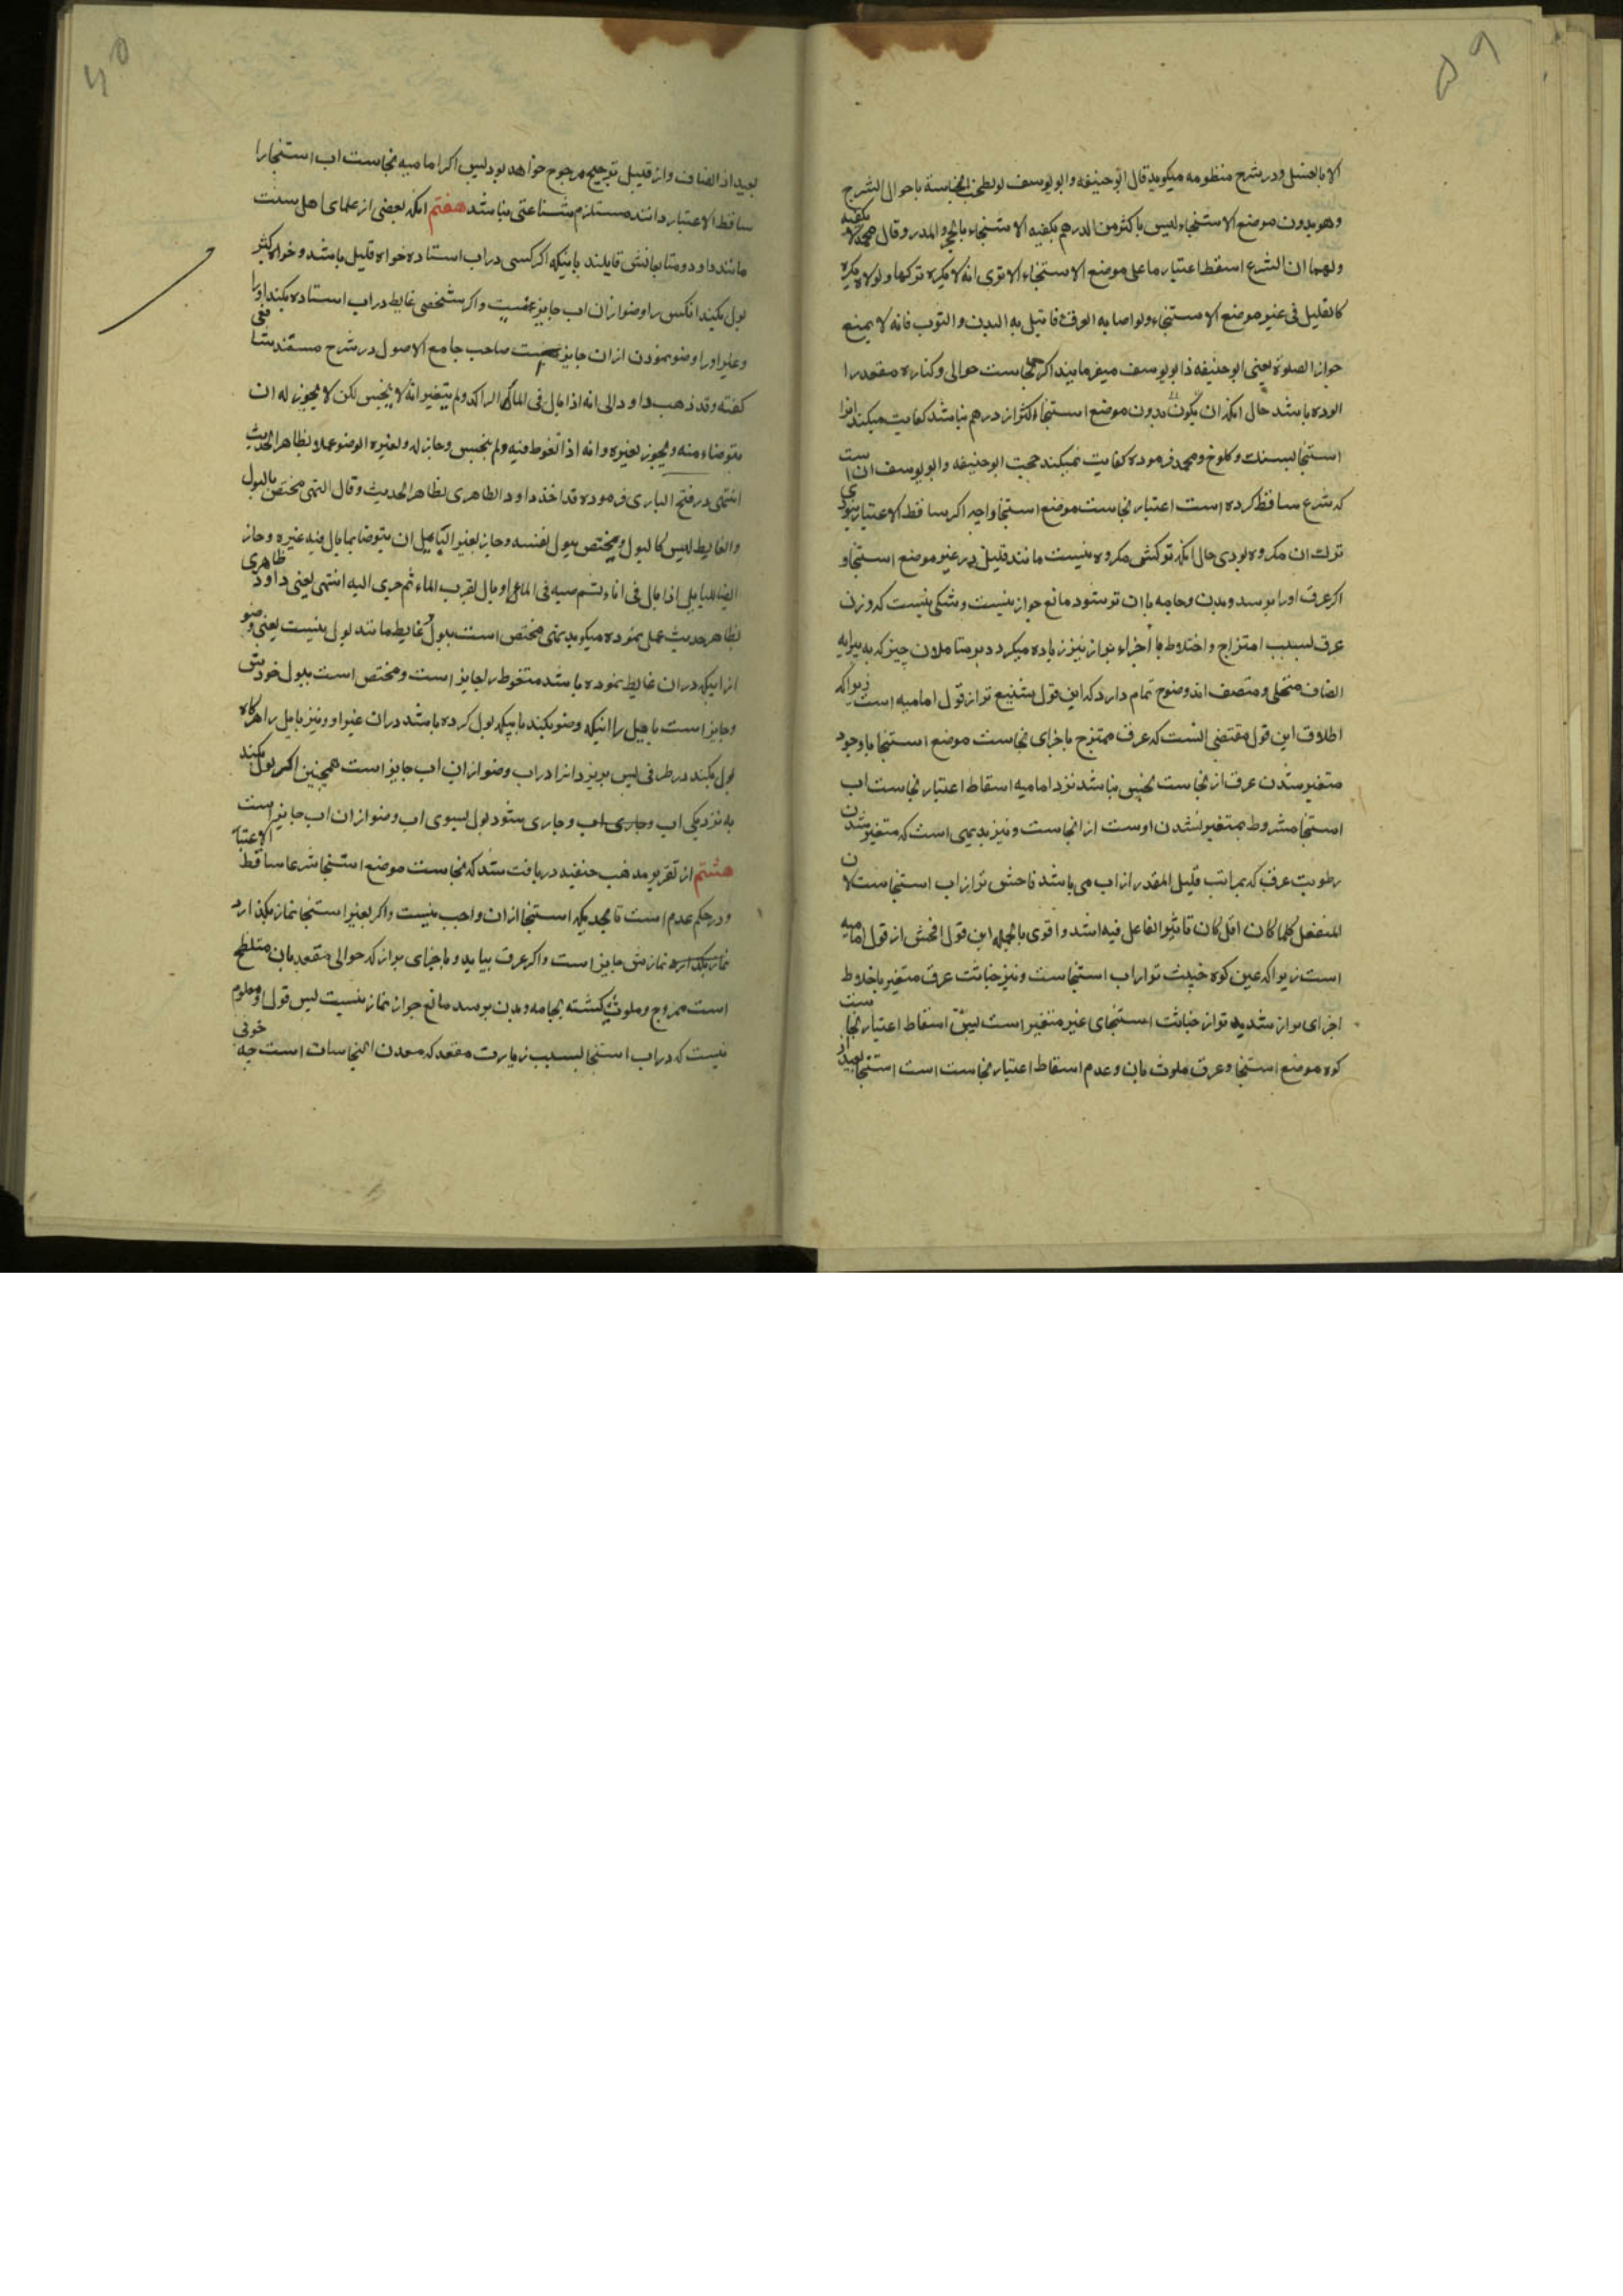 ۵۹
الا بالغسل و در شرح منظومه میکوید قال ابو حنیفه و ابو یوسف لو لطخت النجاسة باحوال الشرج
وهو بدون موضع الاستنجاء لیس باکثر من الدرهم یکفیه الاستنجاء بالحجر والمدر وقال محمد لا یکفیه
ولهما ان الشرع اسقط اعتبار ما علی موضع الاستنجاء الا تری انه لا یکره ترکها ولولاه یکره
کالقلیل فی غیر موضع الاستنجاء ولو اصابه العرق فابتل به البدن والثوب فانه لا یمنع
جواز الصلوة یعنی ابو حنیفه و ابو یوسف میفرمایند اکر نجاست حوالی و کناره مقعد را
الوده باشد حال انکه ان بدون موضع استنجا اکثر از درهم نباشد کفایت میکند انرا
استنجا بسنك و کلوخ و محمد فرموده کفایت نمیکند حجت ابو حنیفه و ابو یوسف ان است
که شرع ساقط کرده است اعتبار نجاست موضع استنجا را چه اکر ساقط الاعتبار نبودی
ترك ان مکروه بودی حال انکه ترکش مکروه نیست مانند قلیل در غیر موضع استنجا و
اکر عرق او را برسد و بدن و جامه بان تر شود مانع جواز نیست و شکی نیست که وزن
عرق بسبب امتزاج و اختلاط با اجزاء براز نیز زیاده میکردد بر متاملان چیز که به پیرایه
انصاف متحلی و متصف اند وضوح تمام دارد که این قول شنیع تر از قول امامیه است زیراکه
اطلاق این قول مقتضی انست که عرق ممتزج باجزای نجاست موضع استنجا باوجود
متغیر شدن عرق از نجاست نجس نباشد نزد امامیه اسقاط اعتبار نجاست اب
استنجا مشروط بمتغیر نشدن اوست از نجاست و نیز بدیهی است که متغیر شدن
رطوبت عرق که بمراتب قلیل المقدر از اب می باشد فاحش تر از اب استنجا ست لان
المنفعل کلما کان اقل کان تاثیر الفاعل فیه اشد و اقوی بالجمله این قول افحش از قول امامیه
است زیراکه عین کوه خبیث تر از اب استنجاست و نیز خباثت عرق متغیر باخلاط
اجزای براز شدید تر از خباثت استنجای غیر متغیر است پس اسقاط اعتبار نجاست
کوه موضع استنجا و عرق ملوث بان و عدم اسقاط اعتبار نجاست است استنجا بعید از
۶۰
بعید از انصاف و از قبیل ترجیح مرجوح خواهد بود پس اکر امامیه نجاست اب استنجا را
ساقط الاعتبار دانند مستلزم شناعتی نباشد هفتم انکه بعضی از علمای اهل سنت
مانند داود و متابعانش قایلند باینکه اکر کسی در اب استاده خواه قلیل باشد و خواه کثیر
بول بکند انکس را وضو از ان اب جایز نیست و اکر شخصی غایط در اب استاده بکند او را
و غیر او را وضو نمودن از ان جایز است صاحب جامع الاصول در شرح مسند شافعی
کفته وقد ذهب داود الی انه اذا بال فی الماء الراکد ولم یتغیر انه لا ینجس لکن لا یجوز له ان
یتوضاء منه ویجوز لغیره وانه اذا تغوط فیه ولم ینجس وجاز له ولغیره الوضو عملا بظاهر الحدیث
انتهی در فتح الباری فرموده قد اخذ داود الظاهری بظاهر الحدیث وقال النهی مختص بالبول
والغایط لیس کالبول ومختص ببول نفسه وجاز لغیر البایل ان یتوضا بما بال فیه غیره وجاز
ایضا للبایل اذا بال فی اناء ثم صبه فی الماء او بال بقرب الماء ثم جری الیه انتهی یعنی داود ظاهری
بظاهر حدیث عمل نموده میکوید نهی مختص است ببول و غایط مانند بول نیست یعنی وضو
از ابیکه در ان غایط نموده باشد متغوط را جایز است و مختص است ببول خودش
و جایز است بایل را اینکه وضو بکند بابیکه بول کرده باشد در ان غیر او و نیز بایل را هرکاه
بول بکند در ظرفی پس بریزد انرا در اب وضو از ان اب جایز است همچنین اکر بول بکند
به نزدیکی اب و جاری شود بول بسوی اب وضو از ان اب جایز است
هشتم از تقریر مذهب حنفیه دریافت شد که نجاست موضع استنجا شرعا ساقط الاعتبا
و در حکم عدم است تا بحدیکه استنجا از ان واجب نیست و اکر بغیر استنجا نماز بکذارد
نمازش جایز است و اکر عرق بیاید و باجزای براز که حوالی مقعد بان متلطخ
است ممزوج و ملوث کشته بجامه و بدن برسد مانع جواز نماز نیست پس قول او معلوم
نیست که در اب استنجا بسبب زیارت مقعد که معدن النجاسات است چه خوبی